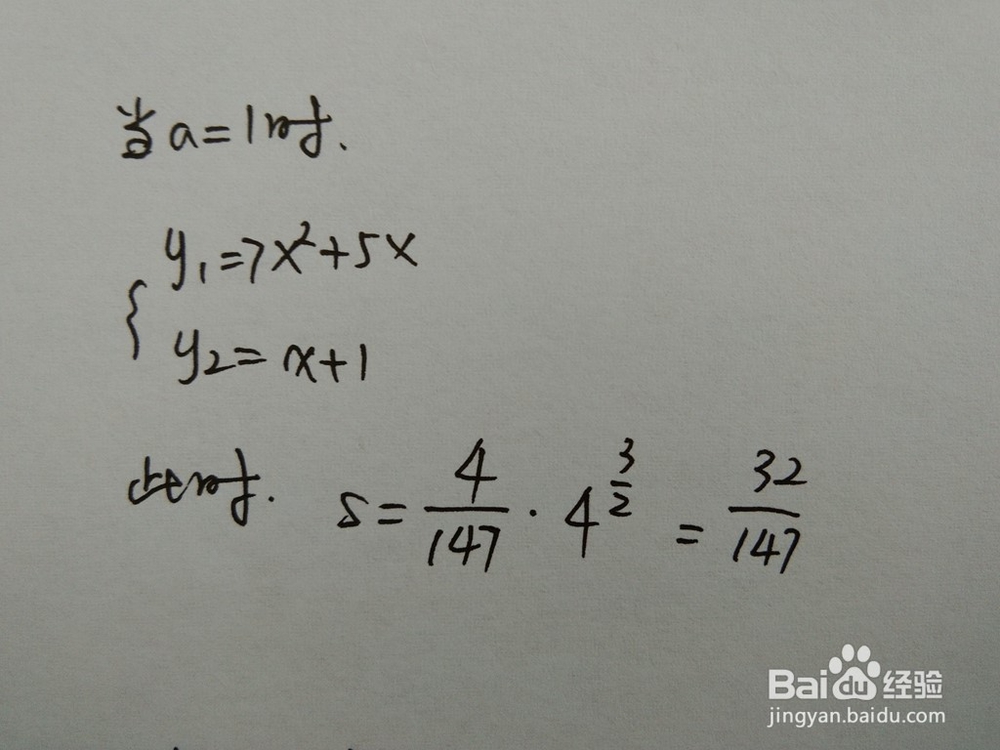 当a=1时.
y₁=7x²+5x
{
y₂=x+1
此时. S=4/147·4^(3/2)=32/147
Baidu经验
jingyan.baidu.com